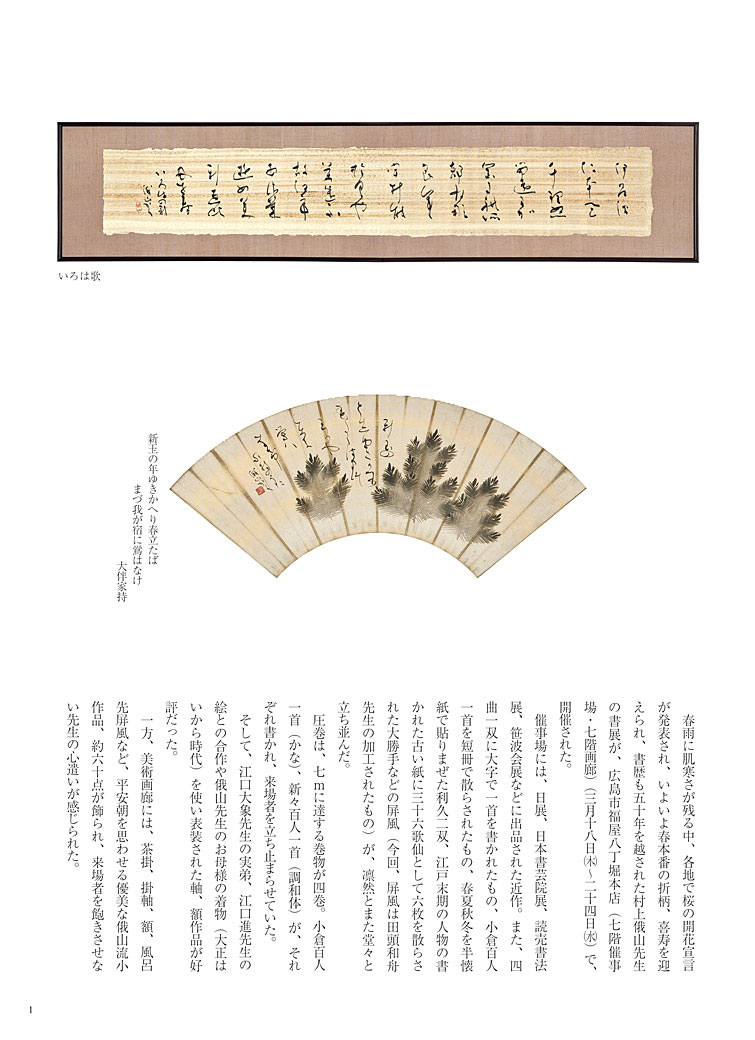 いろは歌
新玉の年ゆきかへり春立たば
まづ我が宿に鶯はなけ
大伴家持
春雨に肌寒さが残る中、各地で桜の開花宣言
が発表され、いよいよ春本番の折柄、喜寿を迎
えられ、書歴も五十年を越された村上俄山先生
の書展が、広島市福屋八丁堀本店（七階催事
場・七階画廊）（三月十八日㈭〜二十四日㈬）で、
開催された。
催事場には、日展、日本書芸院展、読売書法
展、笹波会展などに出品された近作。また、四
曲一双に大字で一首を書かれたもの、小倉百人
一首を短冊で散らされたもの、春夏秋冬を半懐
紙で貼りまぜた利久二双、江戸末期の人物の書
かれた古い紙に三十六歌仙として六枚を散らさ
れた大勝手などの屏風（今回、屏風は田頭和舟
先生の加工されたもの）が、凛然とまた堂々と
立ち並んだ。
圧巻は、七mに達する巻物が四巻。小倉百人
一首（かな）、新々百人一首（調和体）が、それ
ぞれ書かれ、来場者を立ち止まらせていた。
そして、江口大象先生の実弟、江口進先生の
絵との合作や俄山先生のお母様の着物（大正は
いから時代）を使い表装された軸、額作品が好
評だった。
一方、美術画廊には、茶掛、掛軸、額、風呂
先屏風など、平安朝を思わせる優美な俄山流小
作品、約六十点が飾られ、来場者を飽きさせな
い先生の心遣いが感じられた。
1